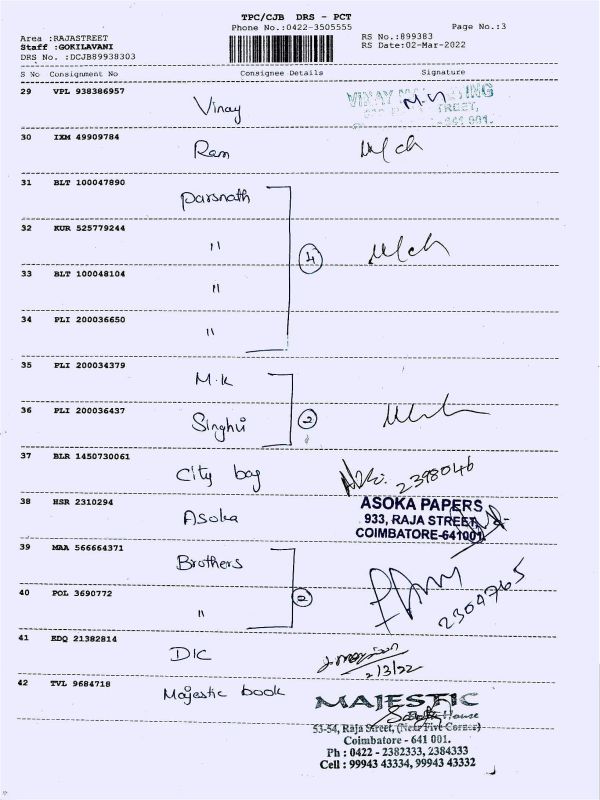 TPC/CJB DRS - PCT
Phone No.:0422-3505555
Page No.:3
Area :RAJASTREET
Staff :GOKILAVANI
DRS No. :DCJB89938303
RS No.:899383
RS Date:02-Mar-2022
S No Consignment No Consignee Details Signature
29 VPL 938386957 Vinay
VINAY
STREET,
641 001.
30 IXM 49909784 Ram
31 BLT 100047890 Parsnath
32 KUR 525779244 " 4
33 BLT 100048104 "
34 PLI 200036650 "
35 PLI 200034379 M.K
36 PLI 200036437 Singhvi 2
37 BLR 1450730061 City bag 2398046
38 HSR 2310294 Asoka
ASOKA PAPERS
933, RAJA STREET
COIMBATORE-641001.
39 MAA 566664371 Brothers
40 POL 3690772 " 2 2304765
41 EDQ 21382814 DIC
2/3/22
42 TVL 9684718 Majestic book
MAJESTIC
House
53-54, Raja Street, (Near Five Corner)
Coimbatore - 641 001.
Ph : 0422 - 2382333, 2384333
Cell : 99943 43334, 99943 43332